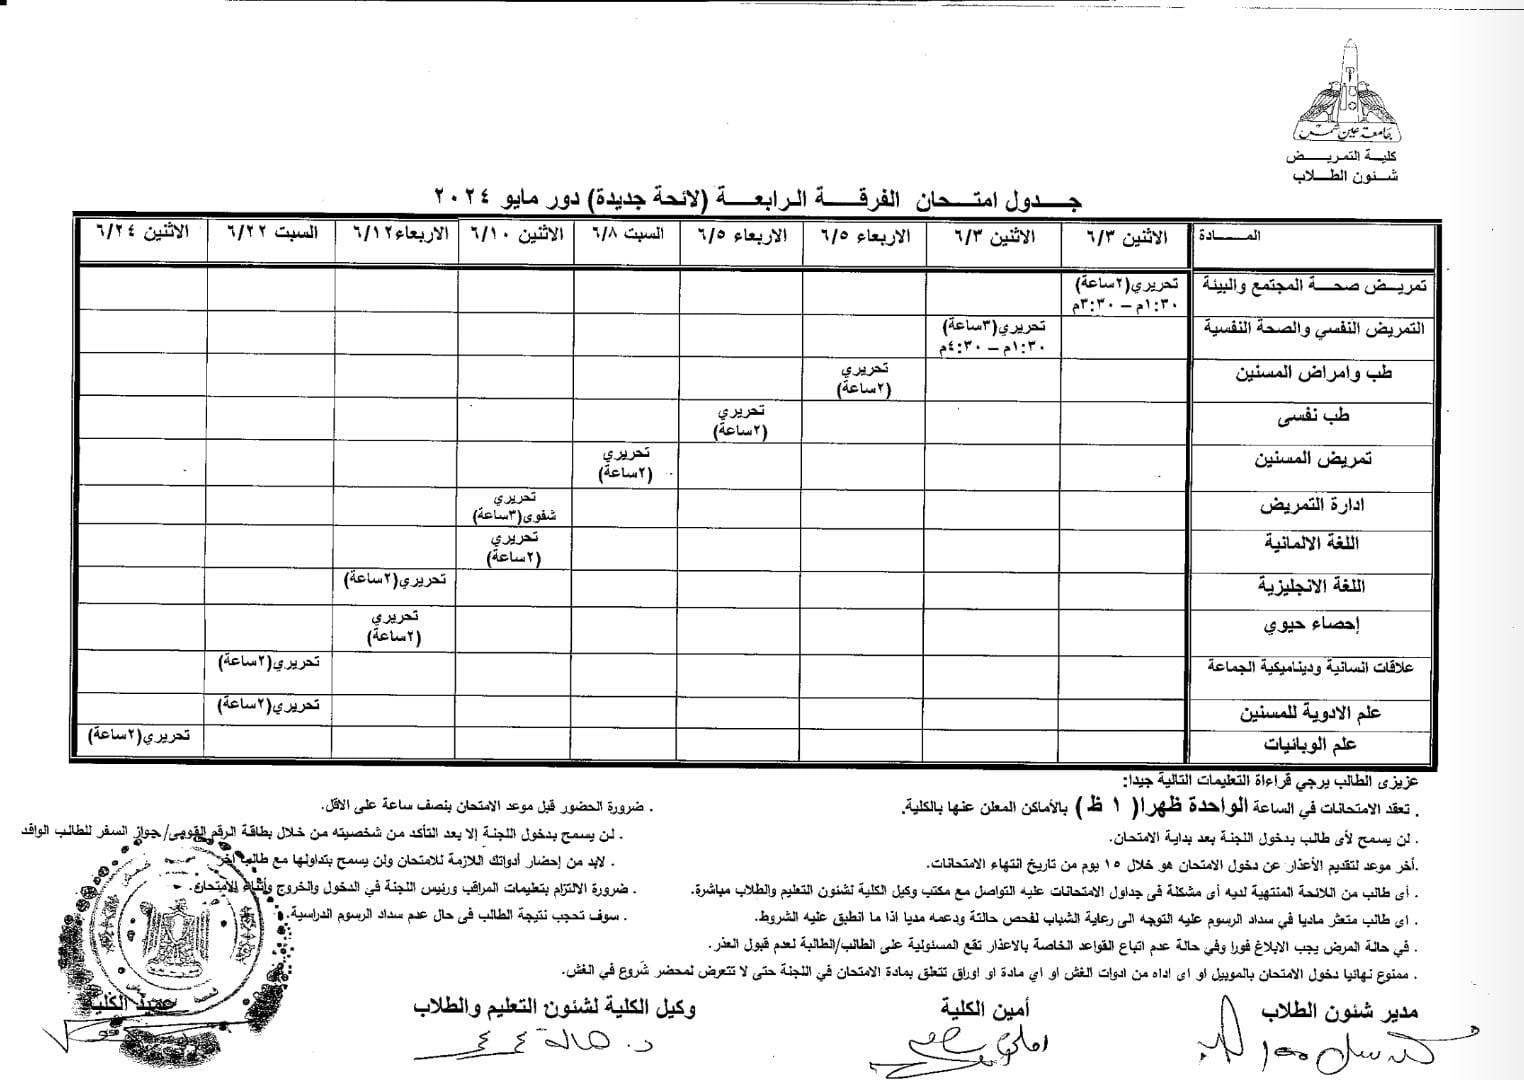 جامعة عين شمس
كلية التمريض
شئون الطلاب
جدول امتحان الفرقة الرابعة (لائحة جديدة) دور مايو ٢٠٢٤
المادة الاثنين ٦/٣ الاثنين ٦/٣ الاربعاء ٦/٥ الاربعاء ٦/٥ السبت ٦/٨ الاثنين ٦/١٠ الاربعاء ٦/١٢ السبت ٦/٢٢ الاثنين ٦/٢٤
تمريض صحة المجتمع والبيئة تحريري(٢ساعة)
١:٣٠م – ٣:٣٠م
التمريض النفسي والصحة النفسية تحريري(٣ساعة)
١:٣٠م – ٤:٣٠م
طب وامراض المسنين تحريري
(٢ساعة)
طب نفسى تحريري
(٢ساعة)
تمريض المسنين تحريري
(٢ساعة)
ادارة التمريض تحريري
شفوى(٣ساعة)
اللغة الالمانية تحريري
(٢ساعة)
اللغة الانجليزية تحريري(٢ساعة)
إحصاء حيوي تحريري
(٢ساعة)
علاقات انسانية وديناميكية الجماعة تحريري(٢ساعة)
علم الادوية للمسنين تحريري(٢ساعة)
علم الوبائيات تحريري(٢ساعة)
عزيزى الطالب يرجي قراءاة التعليمات التالية جيدا:
. تعقد الامتحانات في الساعة الواحدة ظهرا( ١ ظ ) بالأماكن المعلن عنها بالكلية.
. ضرورة الحضور قبل موعد الامتحان بنصف ساعة على الاقل.
. لن يسمح لأى طالب بدخول اللجنة بعد بداية الامتحان.
. لن يسمح بدخول اللجنة إلا بعد التأكد من شخصيته من خلال بطاقة الرقم القومى/جواز السفر للطالب الوافد
.أخر موعد لتقديم الأعذار عن دخول الامتحان هو خلال ١٥ يوم من تاريخ انتهاء الامتحانات.
. لابد من إحضار أدواتك اللازمة للامتحان ولن يسمح بتداولها مع طالب اخر
. أى طالب من اللائحة المنتهية لديه أى مشكلة فى جداول الامتحانات عليه التواصل مع مكتب وكيل الكلية لشئون التعليم والطلاب مباشرة.
. ضرورة الالتزام بتعليمات المراقب ورئيس اللجنة في الدخول والخروج وأثناء الامتحان.
. اى طالب متعثر ماديا في سداد الرسوم عليه التوجه الى رعاية الشباب لفحص حالتة ودعمه مديا اذا ما انطبق عليه الشروط.
. سوف تحجب نتيجة الطالب فى حال عدم سداد الرسوم الدراسية.
. في حالة المرض يجب الابلاغ فورا وفي حالة عدم اتباع القواعد الخاصة بالاعذار تقع المسئولية على الطالب/الطالبة لعدم قبول العذر.
. ممنوع نهائيا دخول الامتحان بالموبيل او اى اداه من ادوات الغش او اي مادة او اوراق تتعلق بمادة الامتحان في اللجنة حتى لا تتعرض لمحضر شروع في الغش.
مدير شئون الطلاب أمين الكلية وكيل الكلية لشئون التعليم والطلاب عميد الكلية